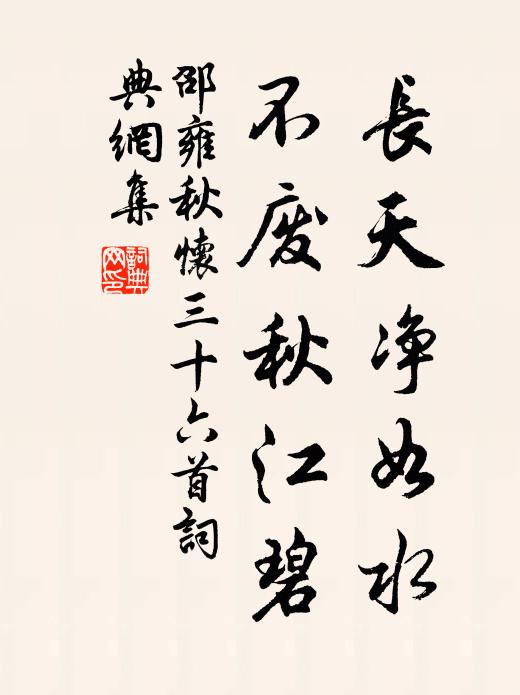 長天净如水
不废秋江碧
邵雍秋懷三十六首詞
典網集
詞典網印